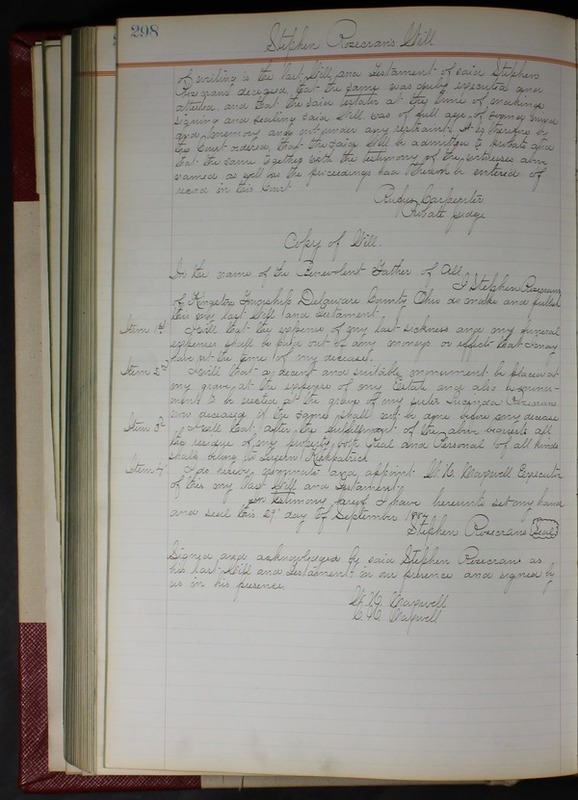 298
Stephen Rosecrans Will
of writing is the last Will and Testament of said Stephen
Rosecrans deceased, that the same was duly executed and
attested, and that the said testator at the time of making
signing and sealing said Will was of full age, of sound mind
and memory and not under any restraint. It is therefore by
the Court ordered, that the said Will be admitted to probate and
that the same together with the testimony of the witnesses above
named as well as the proceedings had therein be entered of
record in this Court
Rufus Carpenter
Probate judge
Copy of Will.
In the name of the Benevolent Father of All,
I Stephen Rosecrans
of Kingston Township Delaware County Ohio do make and publish
this my last Will and testament.
Item 1st I will that the expense of my last sickness and my funeral
expenses shall be paid out of any moneys or effects that I may
have at the time of my decease.
Item 2nd I will that a decent and suitable monument be placed at
my grave at the expense of my Estate and also a monu-
ment to be erected at the grave of my sister Rosecrans
now deceased if the same shall not be done before my decease
Item 3d I will that after the fulfillment of the above bequests all
the residue of my property both Real and Personal of all kinds
shall belong to Kirkpatrick
Item 4th I do hereby nominate and appoint W. N. Maxwell Executor
of this my last Will and Testament
In testimony I have hereunto set my hand
and seal this 29th day of September
Stephen Rosecrans Seal
Signed and acknowledged by said Stephen Rosecrans as
his last Will and Testament in our presence and signed by
us in his presence.
W. N. Maxwell
C. N. Maxwell